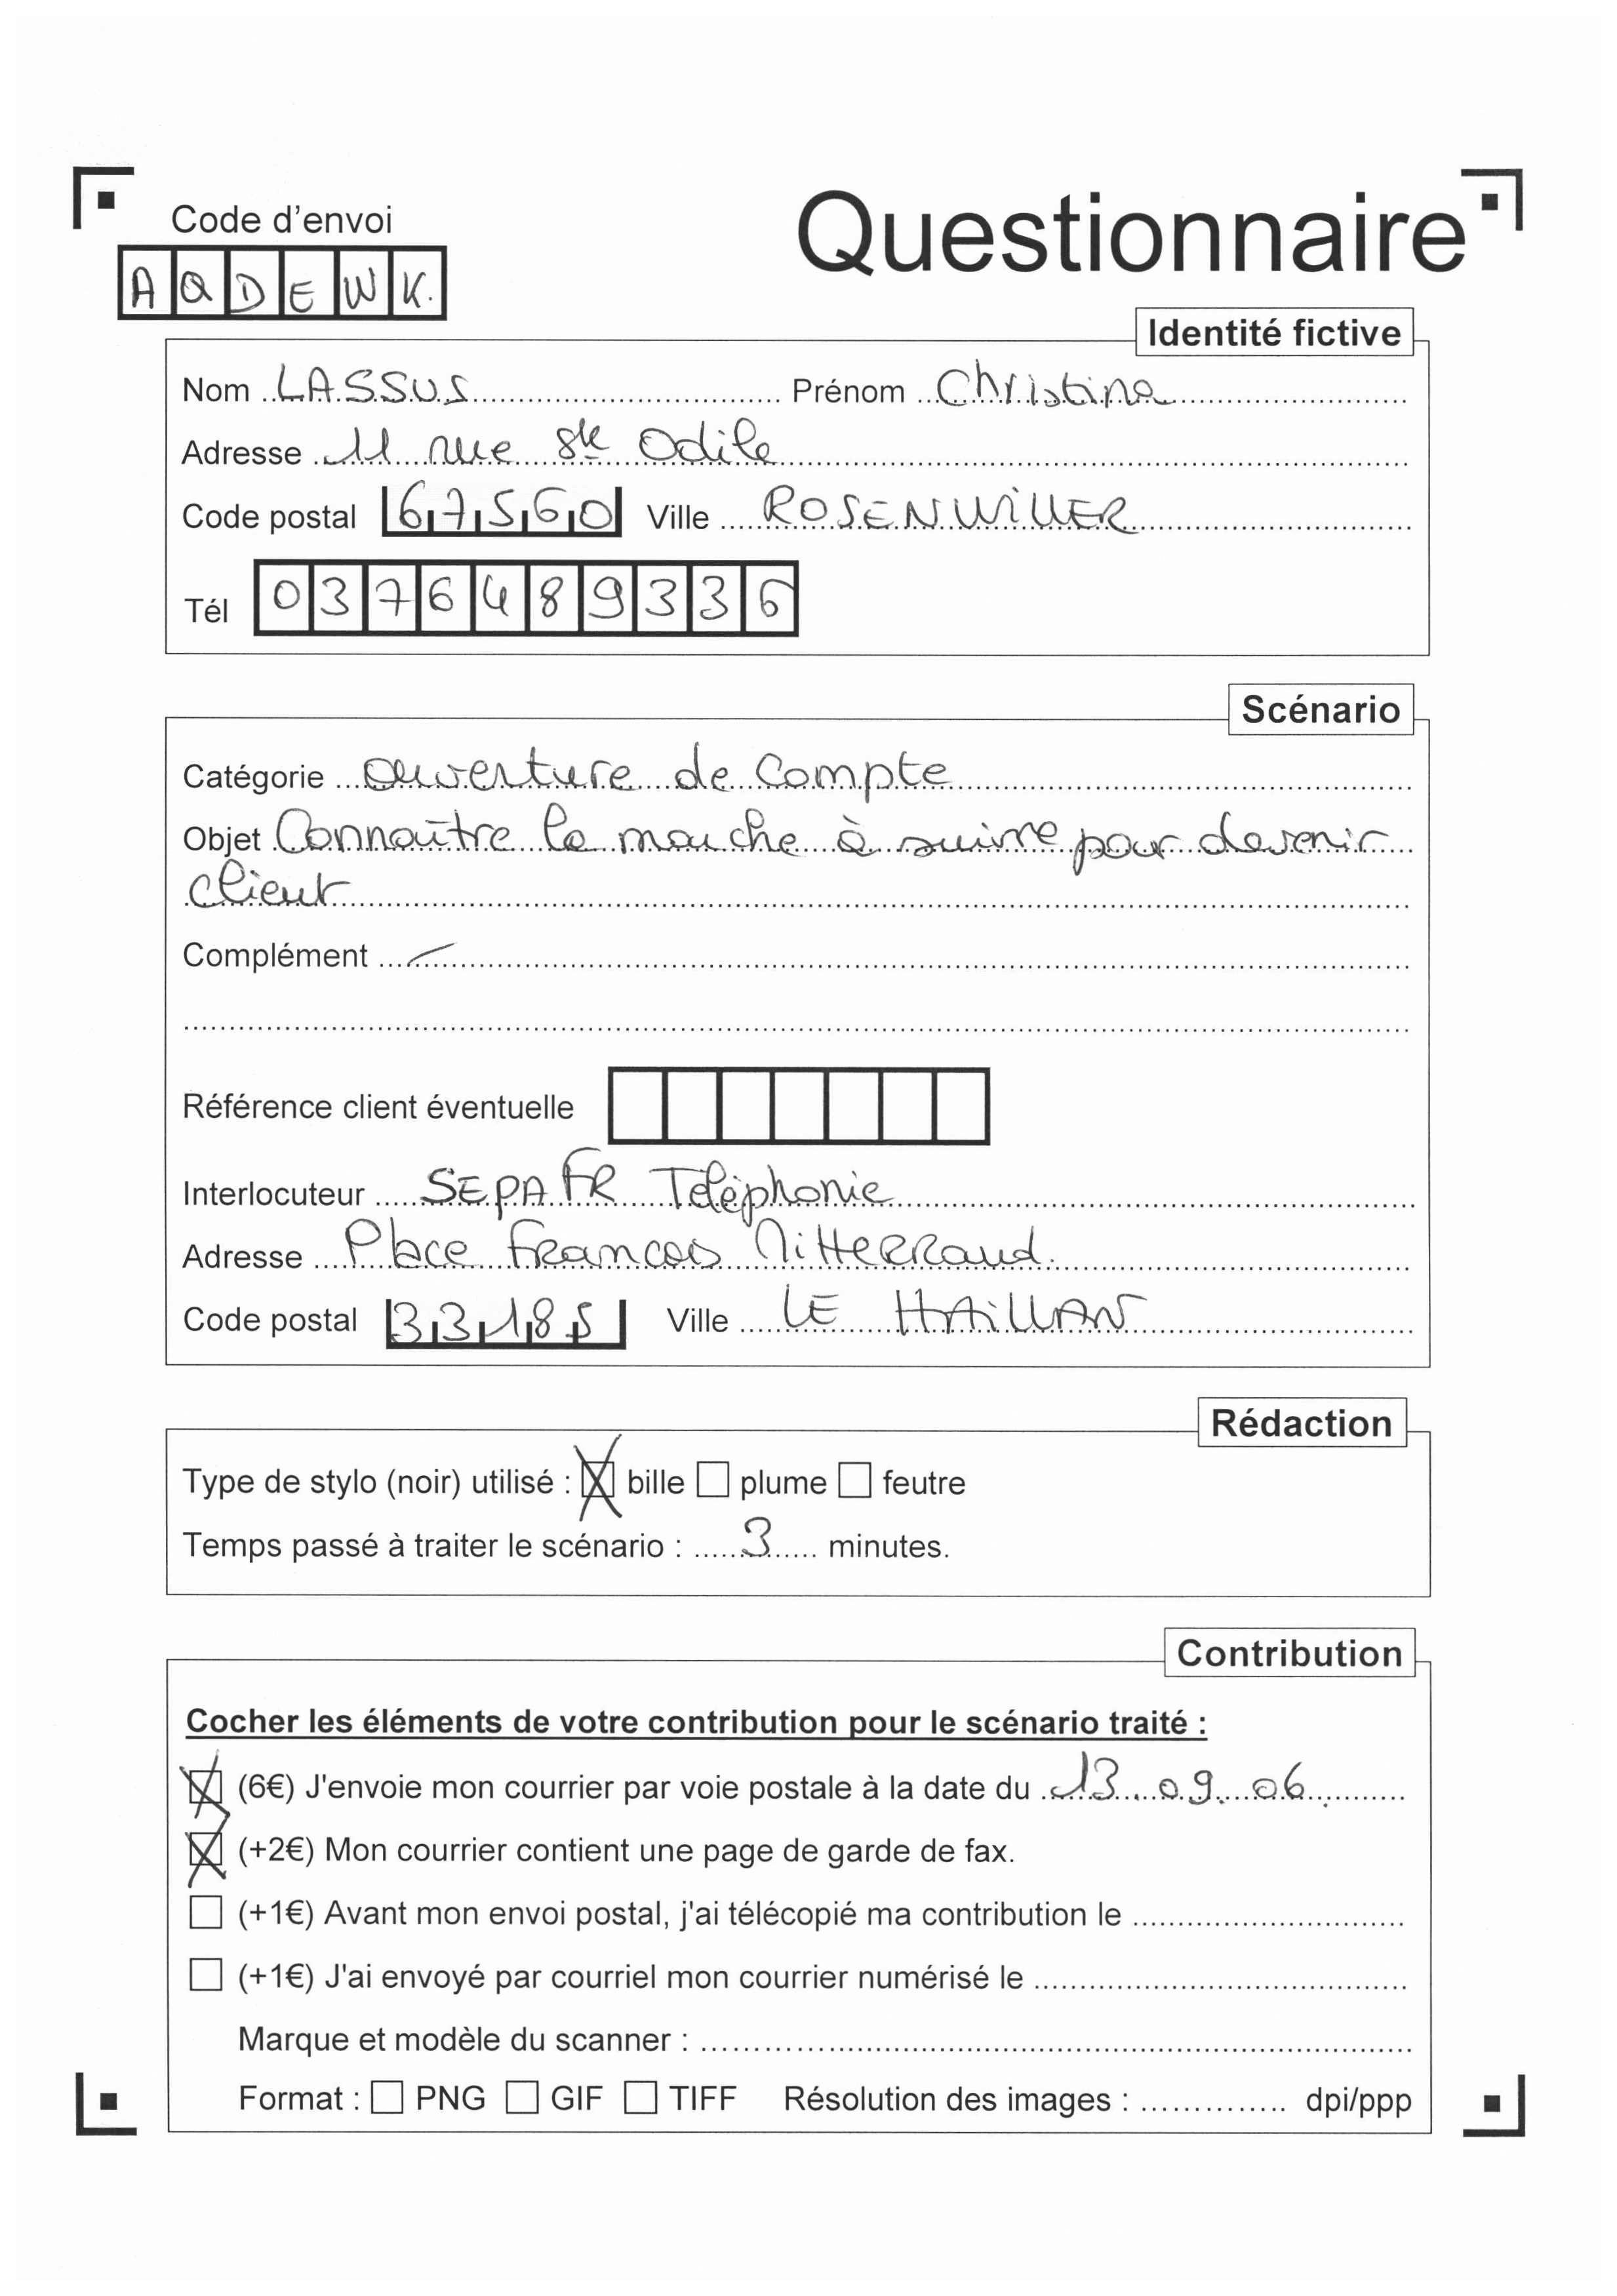 Code d'envoi
Questionnaire
A Q D E W K.
Identité fictive
Nom LASSUS Prénom Christine
Adresse 11 rue Ste Odile
Code postal 67560 Ville ROSENWILLER
Tél 0376489336
Scénario
Catégorie Ouverture de Compte
Objet Connaître la marche à suivre pour devenir
client
Complément
Référence client éventuelle
Interlocuteur SEPAFR Téléphonie
Adresse Place Francois Mitterrand.
Code postal 33185 Ville LE HAILLAN
Rédaction
Type de stylo (noir) utilisé : bille plume feutre
Temps passé à traiter le scénario : 3 minutes.
Contribution
Cocher les éléments de votre contribution pour le scénario traité :
(6€) J'envoie mon courrier par voie postale à la date du 13.09.06.
(+2€) Mon courrier contient une page de garde de fax.
(+1€) Avant mon envoi postal, j'ai télécopié ma contribution le
(+1€) J'ai envoyé par courriel mon courrier numérisé le
Marque et modèle du scanner :
Format : PNG GIF TIFF Résolution des images : dpi/ppp